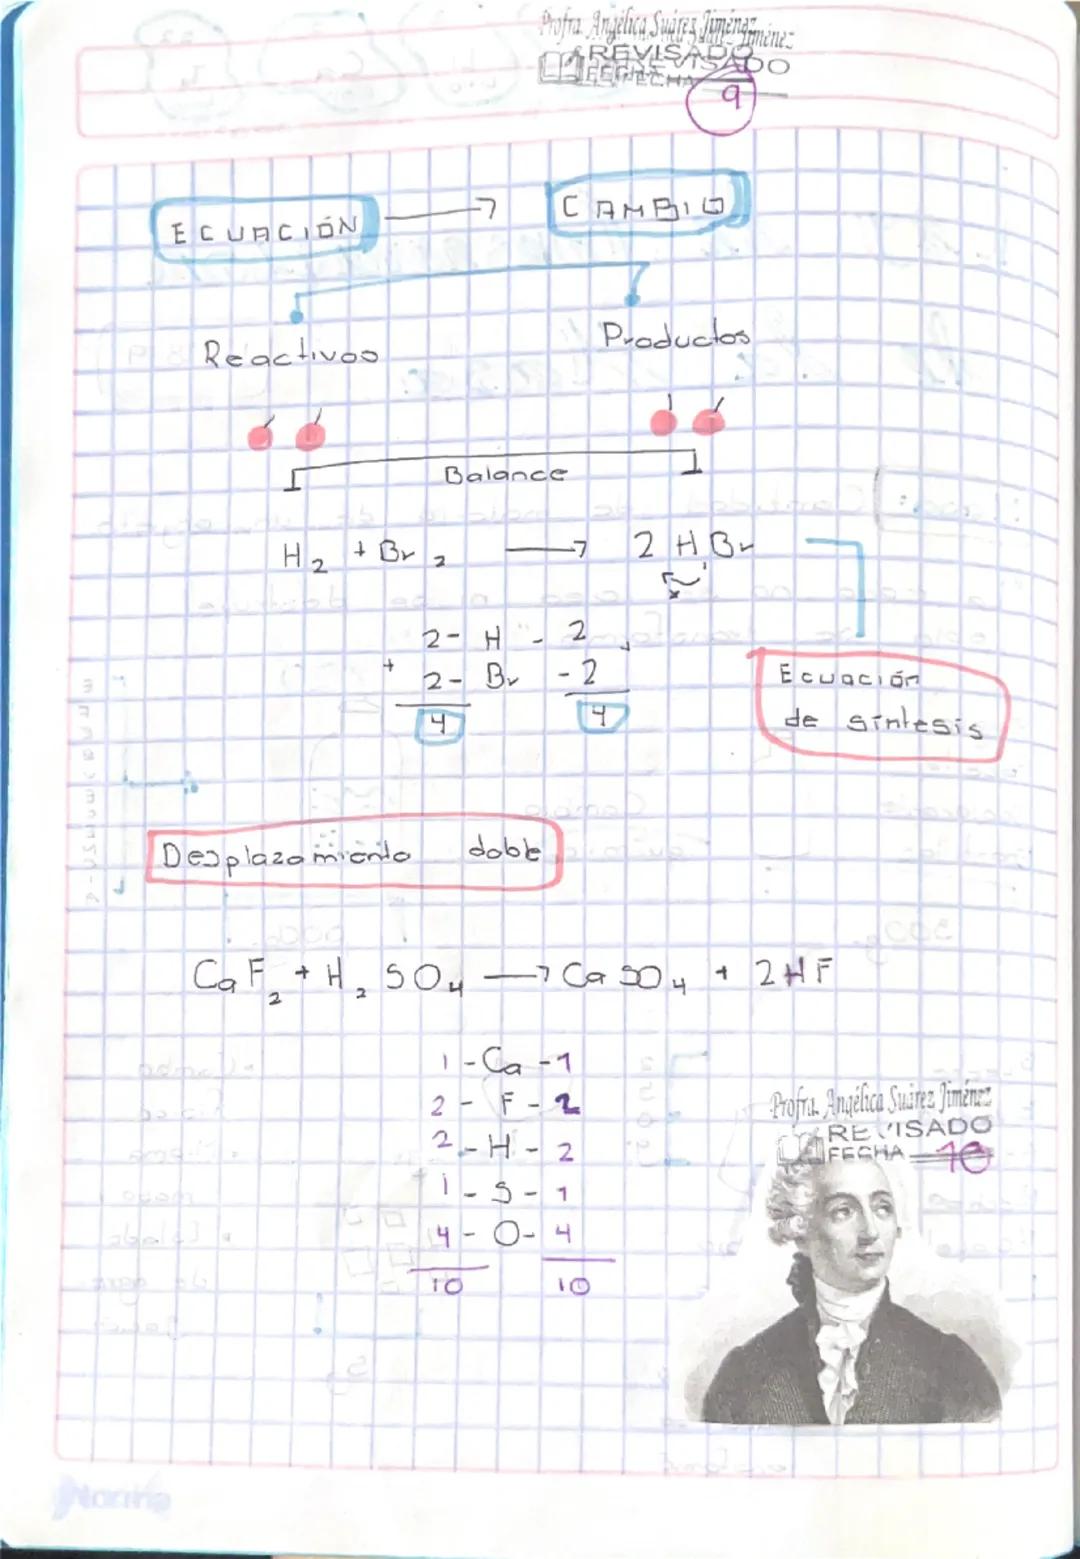 Profra. Angélica Suárez Jiménez
REVISADO
FECHA
9
ECUACIÓN → CAMBIO
Reactivos Productos
Balance
H₂ + Br₂ → 2 HBr
2 - H - 2
+ 2 - Br - 2
4 4
Ecuación
de síntesis
Desplazamiento doble
CaF₂ + H₂SO₄ → CaSO₄ + 2HF
1 - Ca - 1
2 - F - 2
2 - H - 2
1 - S - 1
4 - O - 4
10 10
Profra. Angélica Suárez Jiménez
REVISADO
FECHA 10
Norma